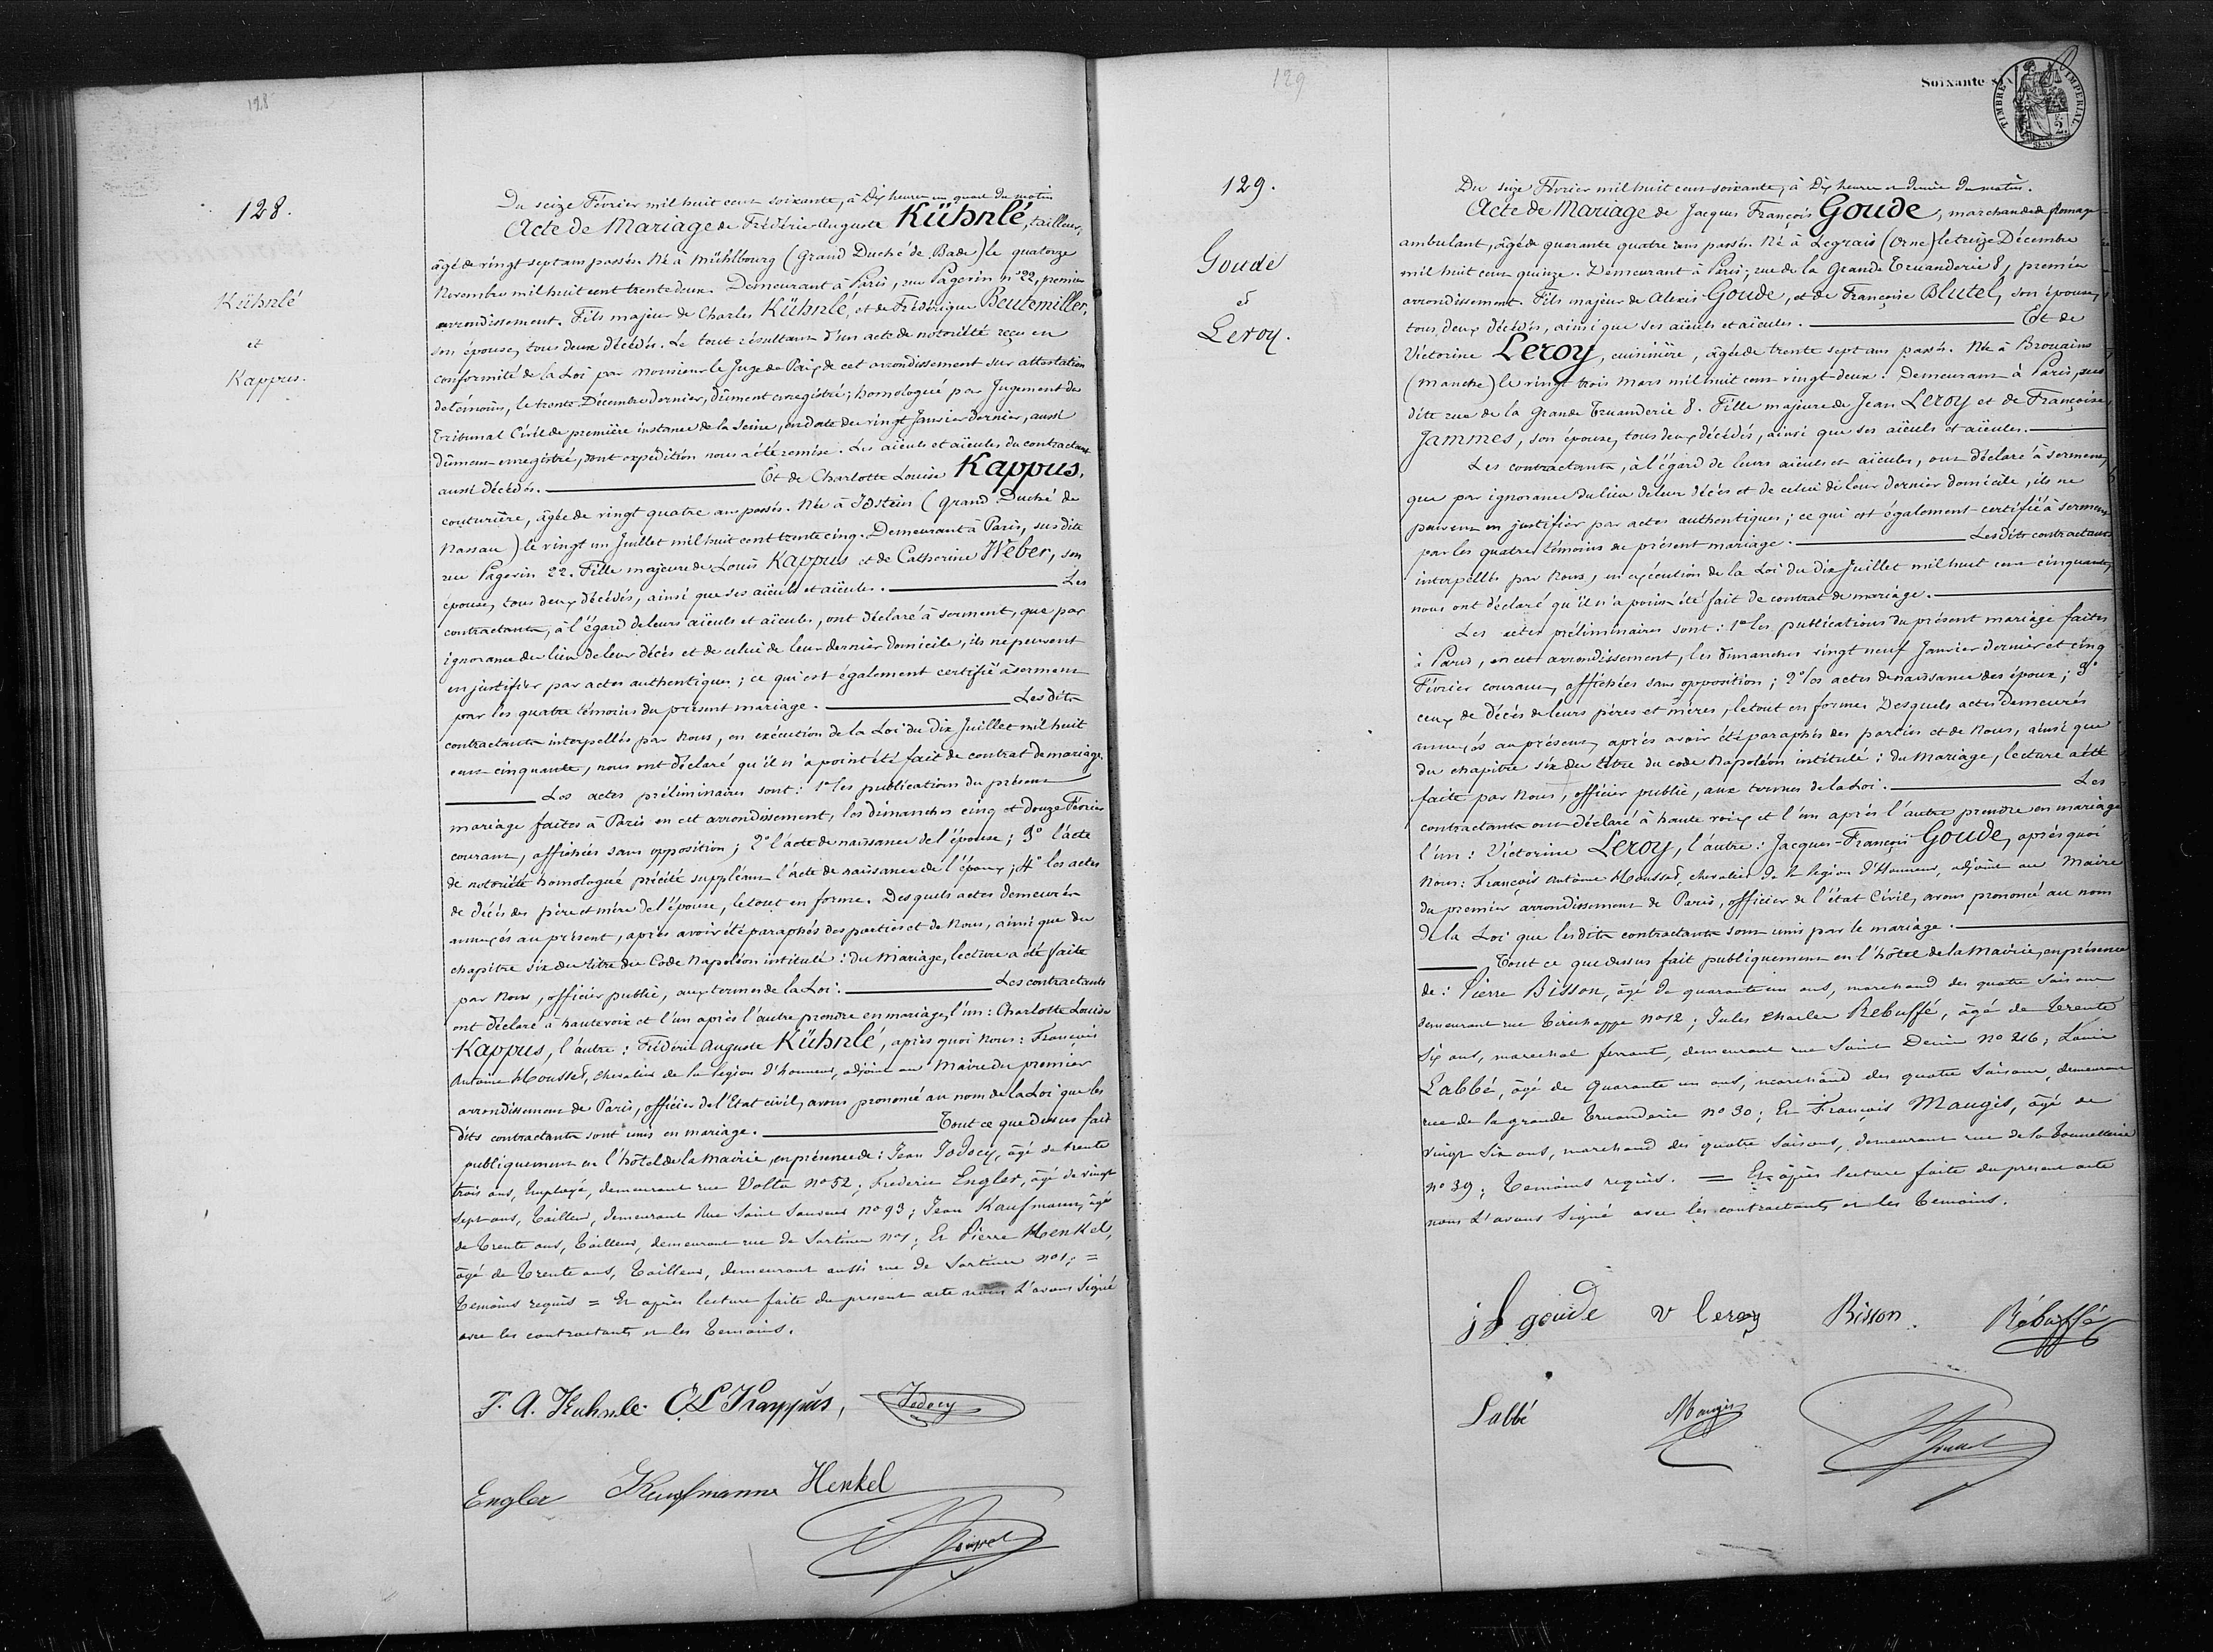 128
128.
Kühnlé
et
Kappus.
Du seize Février mil huit cent soixante, à Dix heures un quart du matin
Acte de Mariage de Frédéric Auguste Kühnlé, tailleur,
âgé de vingt sept ans passés. Né à Mühlbourg (Grand Duché de Bade) le quatorze
Novembre mil huit cent trente deux. Demeurant à Paris, rue Pagevin n° 22, premier
arrondissement. Fils majeur de Charles Kühnlé, et de Frédérique Beutemiller,
son épouse, tous deux décédés. Le tout résultant d'un acte de notoriété reçu en
conformité de la Loi par Monsieur le Juge de Paix de cet arrondissement sur attestation
de témoins, le trente Décembre dernier, dûment enregistré; homologué par Jugement du
Tribunal Civil de première instance de la Seine, en date du vingt Janvier dernier, aussi
dûment enregistré, dont expédition nous a été remise. Les aïeuls et aïeules du contractant
aussi décédés. Et de Charlotte Louise Kappus,
couturière, âgée de vingt quatre ans passés. Née à Idstein (Grand Duché de
Nassau) le vingt un Juillet mil huit cent trente cinq. Demeurant à Paris, sus dite
rue Pagevin 22. Fille majeure de Louis Kappus et de Catherine Weber, son
épouse, tous deux décédés, ainsi que ses aïeuls et aïeules. Les
contractants, à l'égard de leurs aïeuls et aïeules, ont déclaré à serment, que par
ignorance du lieu de leur décès et de celui de leur dernier domicile, ils ne peuvent
en justifier par actes authentiques; ce qui est également certifié à serment
par les quatre témoins du présent mariage. Les dits
contractants interpellés par Nous, en exécution de la Loi du Dix Juillet mil huit
cent cinquante, nous ont déclaré qu'il n'a point été fait de contrat de mariage.
Les actes préliminaires sont: 1° les publications du présent
mariage faites à Paris en cet arrondissement, les dimanches cinq et douze Février
courant, affichées sans opposition; 2° l'acte de naissance de l'épouse; 3° l'acte
de notoriété homologué précité suppléant l'acte de naissance de l'époux; 4° les actes
de décès des père et mère de l'épouse, le tout en forme. Desquels actes demeurés
annexés au présent, après avoir été paraphés des parties et de Nous, ainsi que du
chapitre six du titre du Code Napoléon intitulé: du Mariage, lecture a été faite
par Nous, officier public, aux termes de la Loi. Les contractants
ont déclaré à haute voix et l'un après l'autre prendre en mariage, l'un: Charlotte Louise
Kappus, l'autre: Frédéric Auguste Kühnlé, après quoi Nous: François
Antoine Housset, chevalier de la légion d'honneur, adjoint au Maire du premier
arrondissement de Paris, officier de l'Etat civil, avons prononcé au nom de la Loi que les
dits contractants sont unis en mariage. Tout ce que dessus fait
publiquement en l'hôtel de la Mairie, en présence de: Jean Jodocy, âgé de trente
trois ans, Employé, demeurant rue Volta n° 52; Frederic Engler, âgé de vingt
sept ans, Tailleur, demeurant Rue Saint Sauveur n° 93; Jean Kaufmann, âgé
de Trente ans, Tailleur, demeurant rue de Sartines n° 1; Et Pierre Henkel,
âgé de Trente ans, Tailleur, demeurant aussi rue de Sartines n° 1; =
Temoins requis = Et après lecture faite du present acte nous l'avons signé
avec les contractants et les Temoins.
F. A. Kuhnle. C L Kappus, Jodocy
Engler Kaufmann Henkel
129
Soixante
TIMBRE IMPERIAL
2
129.
Goude
et
Leroy.
Du seize Février mil huit cent soixante, à Dix heures et demie du matin.
Acte de Mariage de Jacques François Goude, marchand de fromage
ambulant, âgé de quarante quatre ans passés. Né à Legrais (Orne) le treize Décembre
mil huit cent quinze. Demeurant à Paris, rue de la Grande Truanderie 8, premier
arrondissement. Fils majeur de Alexis Goude, et de Françoise Blutel, son épouse,
tous deux décédés, ainsi que ses aïeuls et aïeules. Et de
Victorine Leroy, cuisinière, âgée de trente sept ans passés. Née à Brouains
(Manche) le vingt trois Mars mil huit cent vingt-deux. Demeurant à Paris, sus
dite rue de la Grande Truanderie 8. Fille majeure de Jean Leroy et de Françoise
Jammes, son épouse, tous deux décédés, ainsi que ses aïeuls et aïeules.
Les contractants, à l'égard de leurs aïeuls et aïeules, ont déclaré à serment,
que par ignorance du lieu de leur décès et de celui de leur dernier domicile, ils ne
peuvent en justifier par actes authentiques; ce qui est également certifié à serment
par les quatre témoins du présent mariage. Les dits contractants
interpellés par Nous, en exécution de la Loi du Dix Juillet mil huit cent cinquante,
nous ont déclaré qu'il n'a point été fait de contrat de mariage.
Les actes préliminaires sont: 1° les publications du présent mariage faites
à Paris, en cet arrondissement, les dimanches vingt neuf Janvier dernier et cinq
Février courant, affichées sans opposition; 2° les actes de naissance des époux; 3°
ceux de décès de leurs pères et mères, le tout en forme. Desquels actes demeurés
annexés au présent, après avoir été paraphés des parties et de Nous, ainsi que
du chapitre six du titre du code Napoléon intitulé: du Mariage, lecture a été
faite par Nous, officier public, aux termes de la Loi. Les
contractants ont déclaré à haute voix et l'un après l'autre prendre en mariage
l'un: Victorine Leroy, l'autre: Jacques-François Goude, après quoi
Nous: François Antoine Housset, chevalier de la légion d'Honneur, adjoint au Maire
du premier arrondissement de Paris, officier de l'état Civil, avons prononcé au nom
de la Loi que les dits contractants sont unis par le mariage.
Tout ce que dessus fait publiquement en l'hôtel de la Mairie, en présence
de: Pierre Bisson, âgé de quarante un ans, marchand des quatre saisons
demeurant rue Tirechappe n° 12; Jules Charles Rebuffé, âgé de Trente
Six ans, marechal ferrant, demeurant rue Saint Denis n° 216; Louis
Labbé, âgé de Quarante un ans, marchand des quatre Saisons, demeurant
rue de la grande Truanderie n° 30; Et François Maugis, âgé de
vingt Six ans, marchand des quatre Saisons, demeurant rue de la Tonnellerie
n° 39; Temoins requis. = Et après lecture faite du present acte
nous l'avons Signé avec les contractants et les Temoins.
j f goude v leroy Bisson. Rébuffé
Labbé Maugis